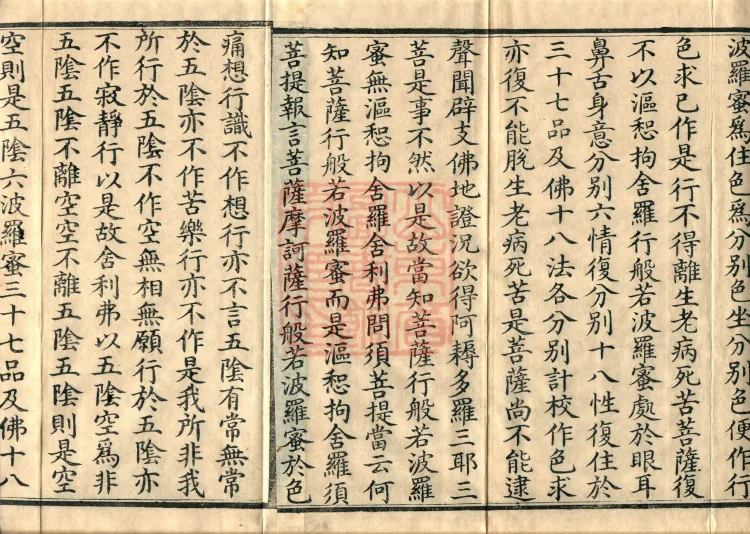 波羅蜜爲住色爲分別色坐分別色便作行
色求已作是行不得離生老病死苦菩薩復
不以漚惒拘舍羅行般若波羅蜜處於眼耳
鼻舌身意分別六情復分別十八性復住於
三十七品及佛十八法各分別計校作色求
亦復不能脫生老病死苦是菩薩尚不能逮
聲聞辟支佛地證況欲得阿耨多羅三耶三
菩是事不然以是故當知菩薩行般若波羅
蜜無漚惒拘舍羅舍利弗問須菩提當云何
知菩薩行般若波羅蜜而是漚惒拘舍羅須
菩提報言菩薩摩訶薩行般若波羅蜜於色
痛想行識不作想行亦不言五陰有常無常
於五陰亦不作苦樂行亦不作是我所非我
所行於五陰不作空無相無願行於五陰亦
不作寂靜行以是故舍利弗以五陰空爲非
五陰五陰不離空空不離五陰五陰則是空
空則是五陰六波羅蜜三十七品及佛十八